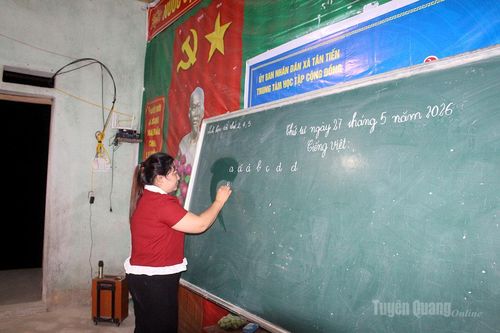 ỦY BAN NHÂN DÂN XÃ TÂN TIẾN
TRUNG TÂM HỌC TẬP CỘNG ĐỒNG
Thứ tư ngày 27 tháng 5 năm 2026
Tiếng Việt:
a ă â b c d đ
Tuyên Quang Online